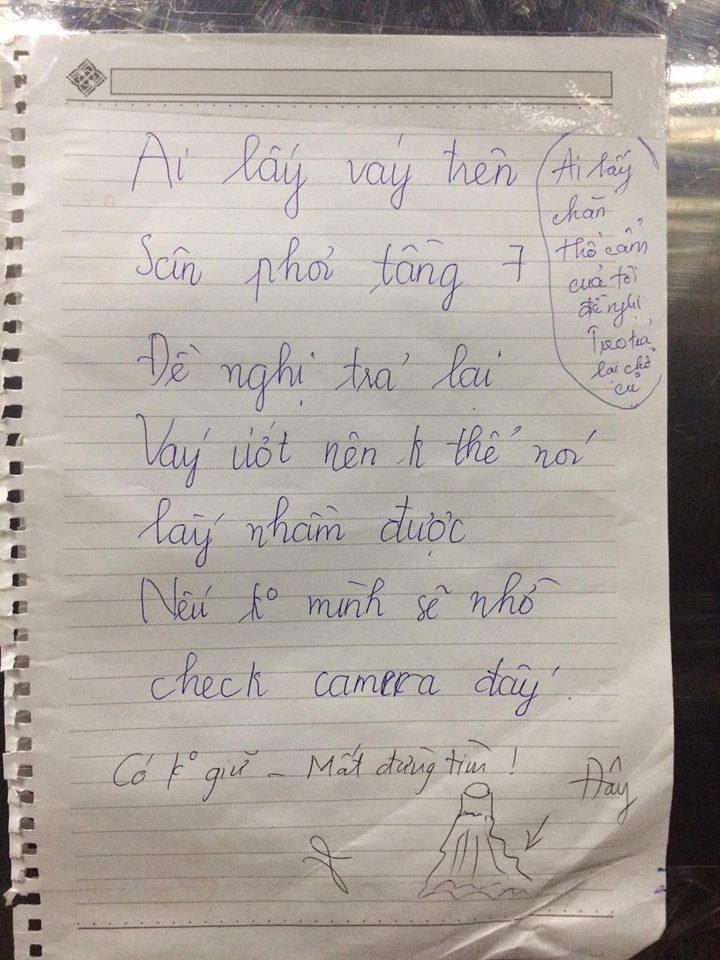 Ai lấy váy trên
Sân phơi tầng 7
Đề nghị trả lại
Váy ướt nên k thể nói
lấy nhầm được
Nếu ko mình sẽ nhờ
check camera đấy
Ai lấy
chăn
thổ cẩm
của tôi
đề nghị
Treo trả
lại chỗ
cũ
Có ko giữ – Mất đừng tìm !
Đây